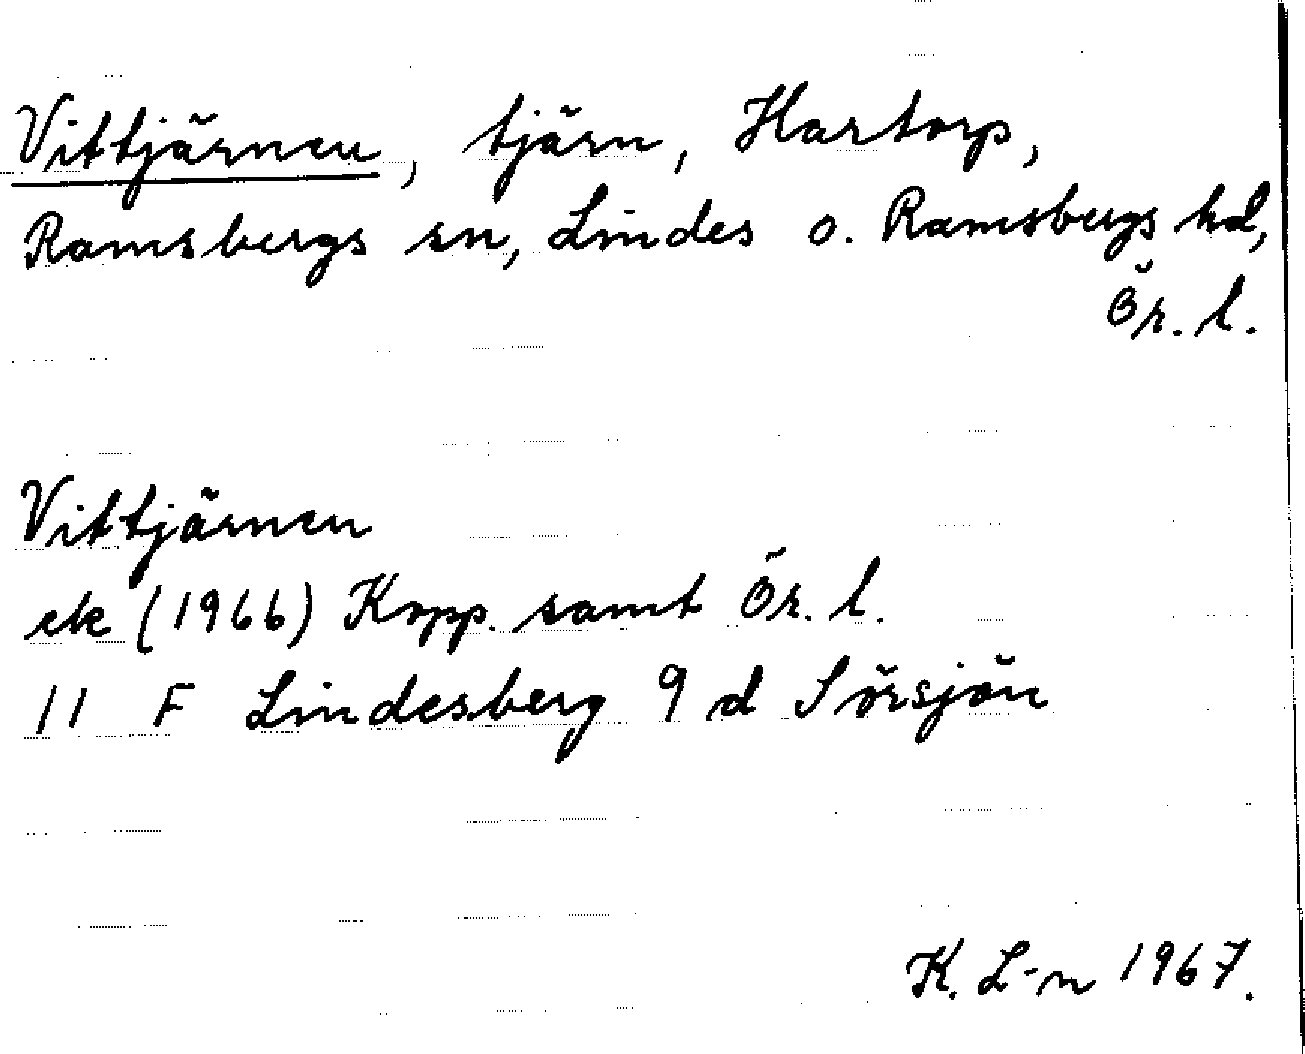 Vittjärnen, tjärn, Hartorp,
Ramsbergs sn, Lindes o. Ramsbergs hd,
Ör. l.
Vittjärnen
ek (1966) Kopp. samt Ör. l.
11 F Lindesberg 9 d Sörsjön
K. L-n 1967.